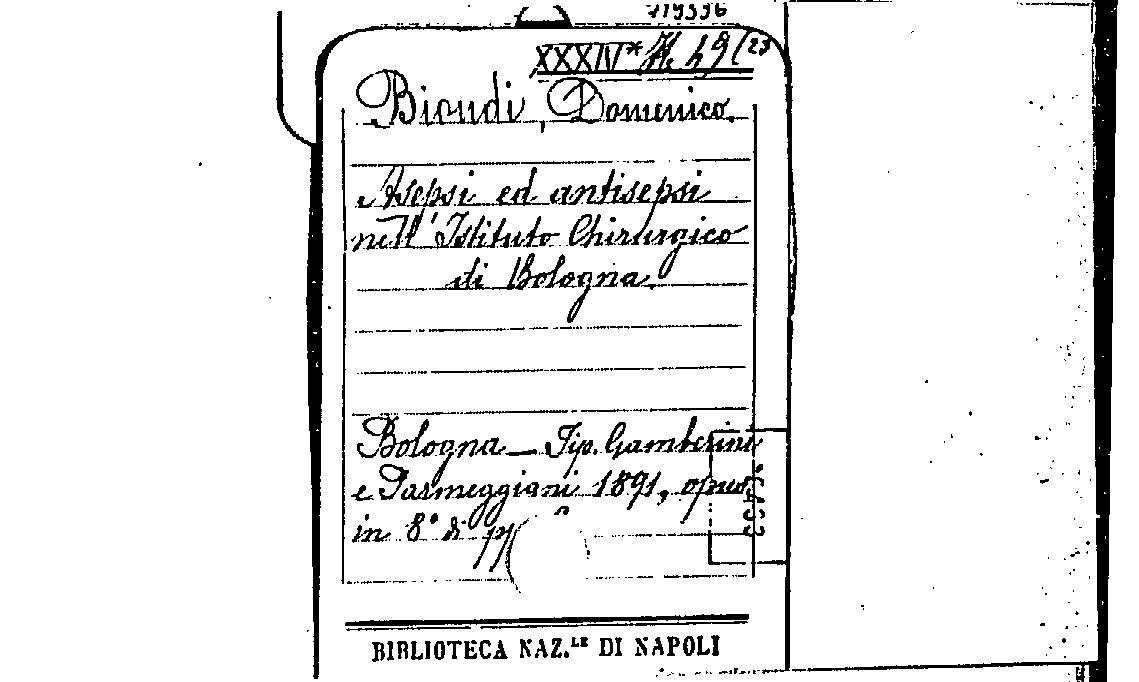 119336
XXXIV* H. 49 (23
Biondi, Domenico.
Asepsi ed antisepsi
nell'Istituto Chirurgico
di Bologna.
Bologna — Tip. Gamberini
e Parmeggiani 1891, opus.
in 8° di pp
BIBLIOTECA NAZ.LE DI NAPOLI